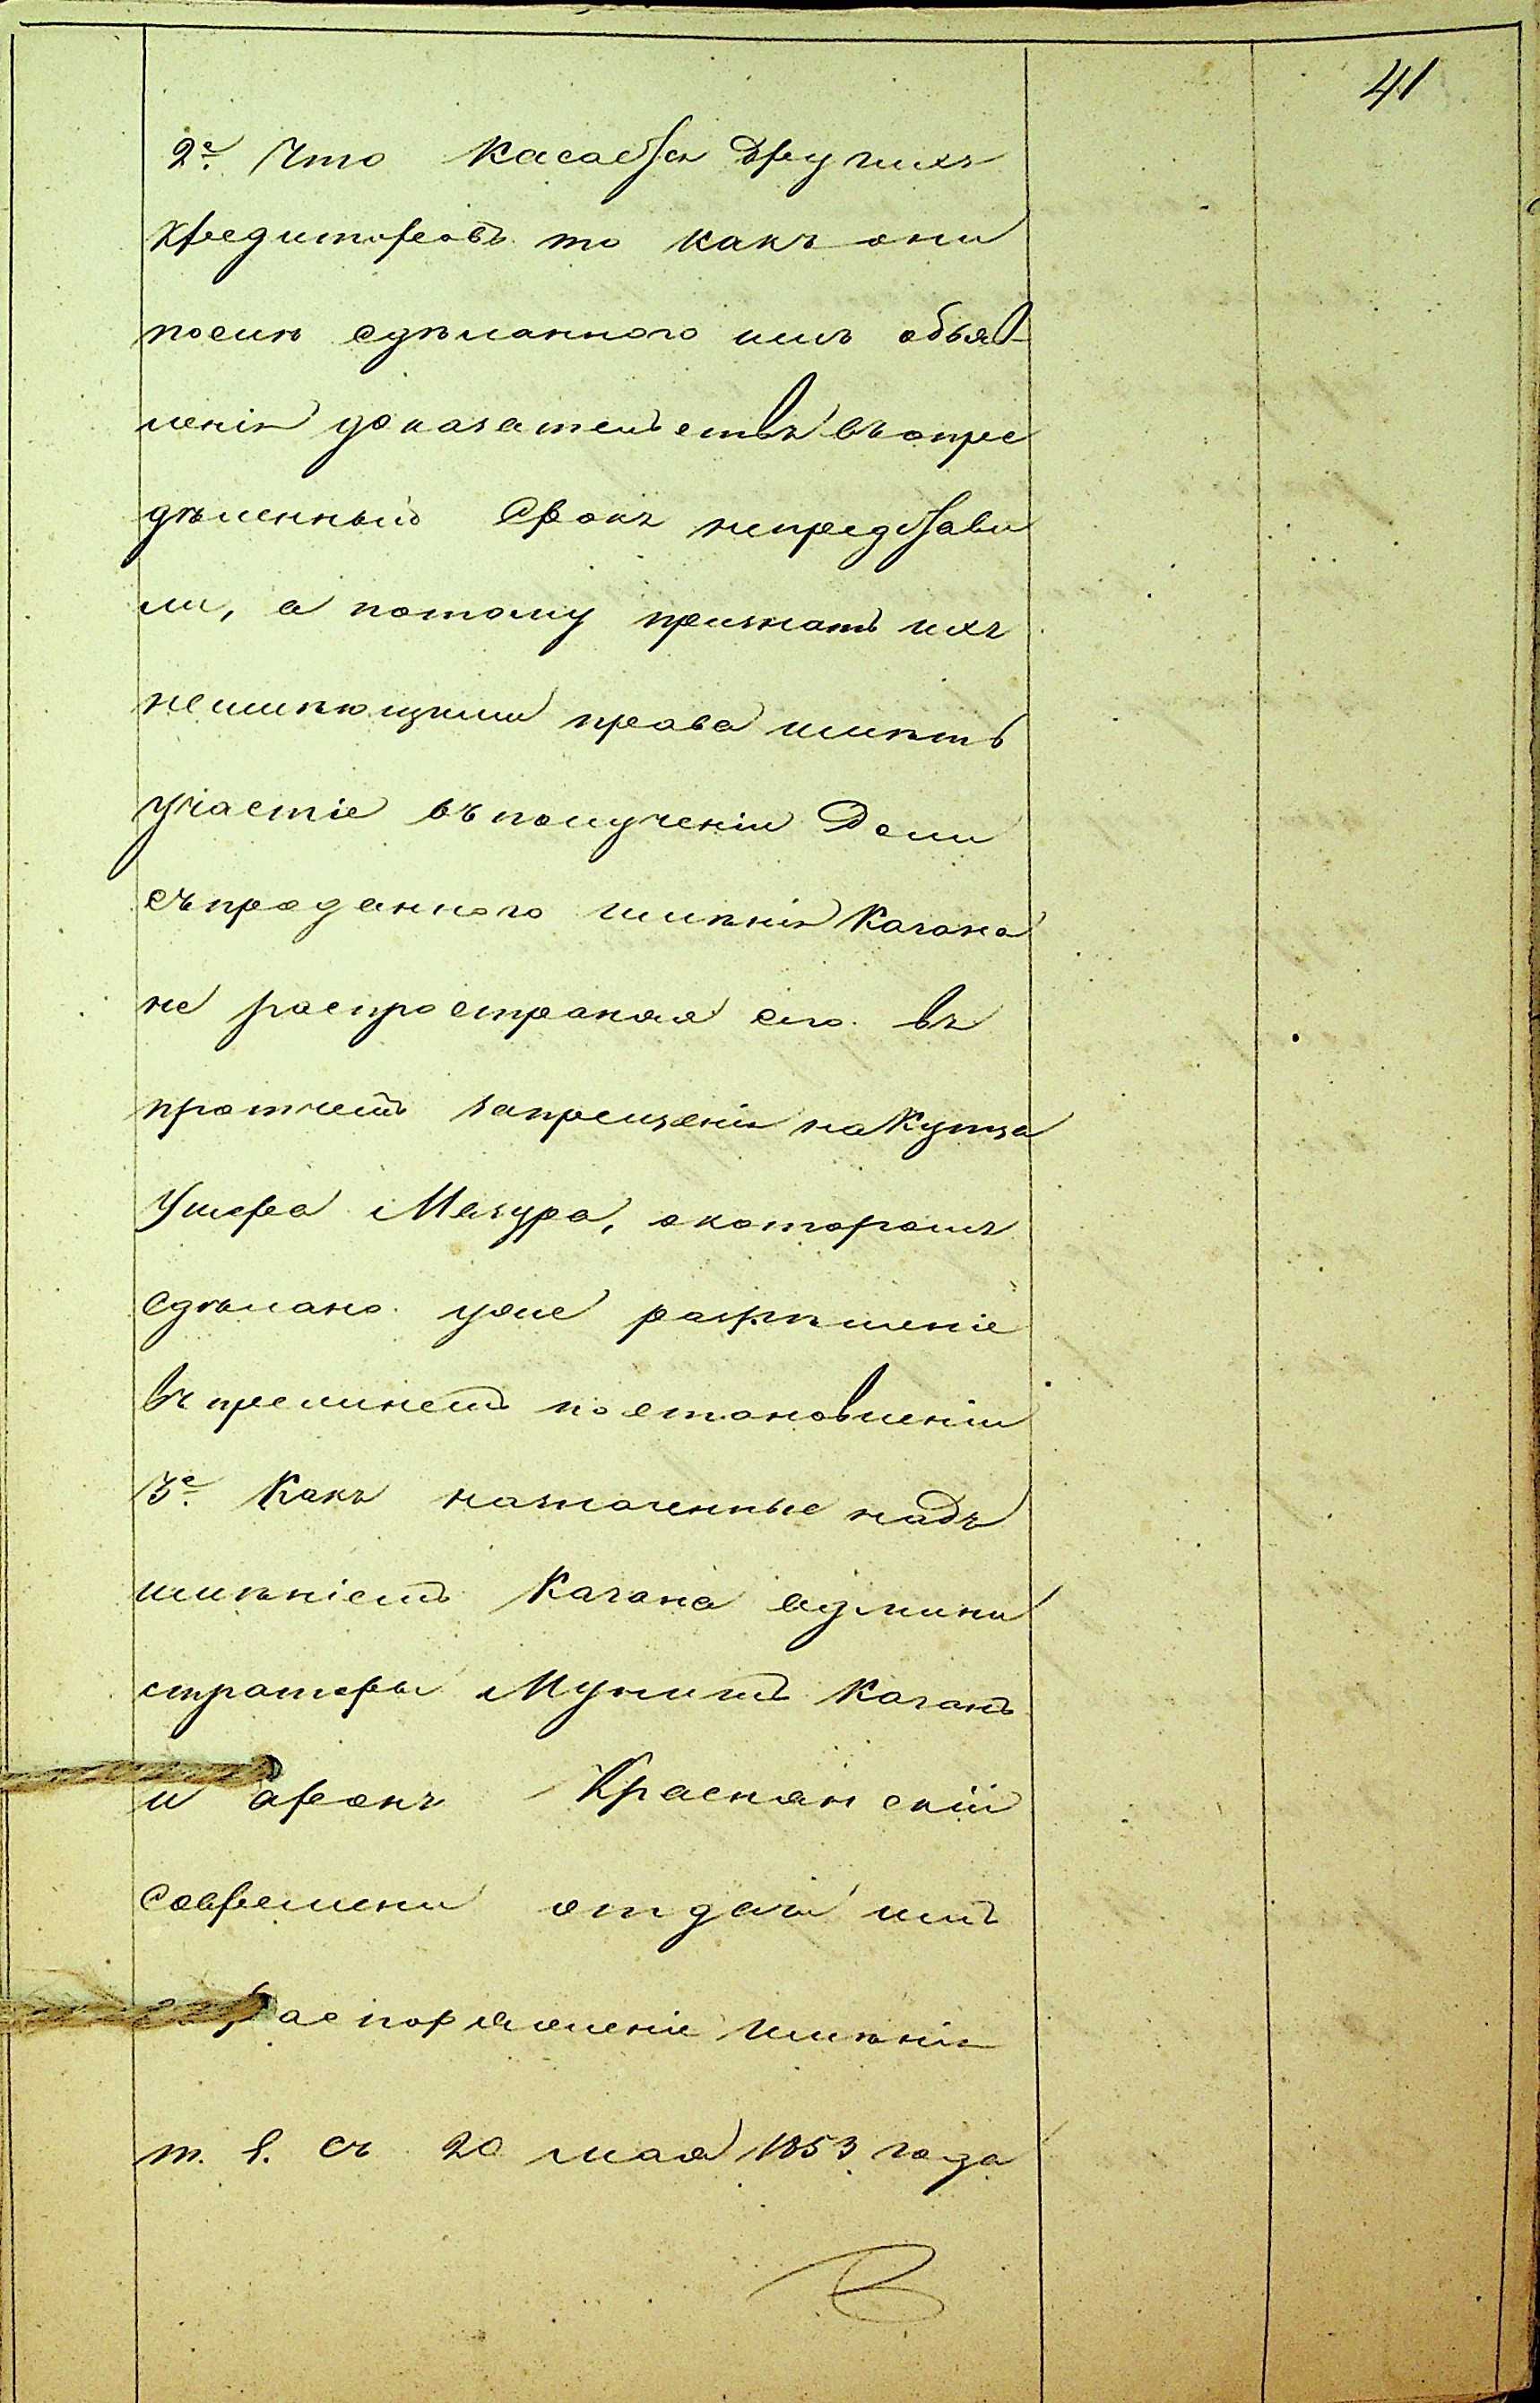 41
2е. Что касается другихъ
кредиторовъ то какъ они
послѣ сдѣланного имъ объяв-
ленія доказательствъ въ опре
дѣленный срокъ непредстави
ли, а потому признать ихъ
неимѣющими права имѣть
участіе въ полученіи доли
съ проданного имѣнія Кагана
не распространяя сего въ
прочемъ запрещенія на Купца
Ушера Мазура, о которомъ
сдѣлано уже разрѣшеніе
въ прежнемъ постановленіи
3е. Какъ назначенные надъ
имѣніемъ Кагана админи
страторы Мунишъ Каганъ
и Аронъ Краснянскій
со времени отдачи имъ
въ распоряженіе имѣнія
т. е. съ 20 мая 1853 года